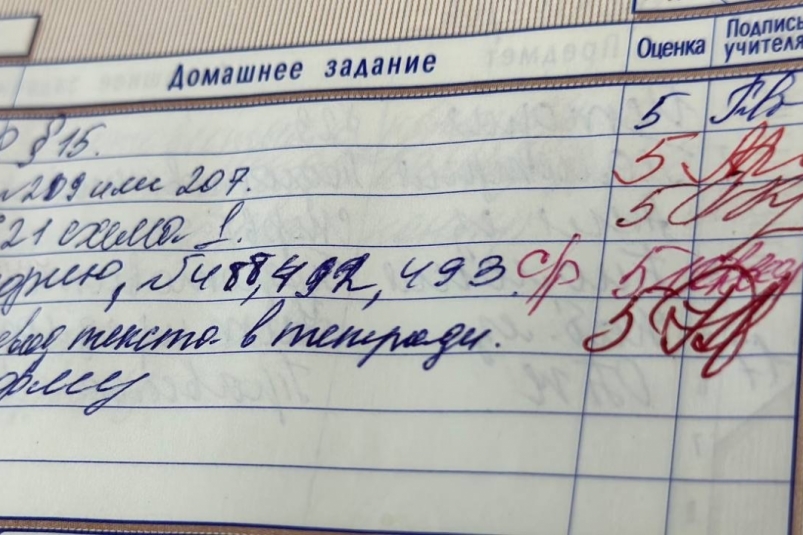 Домашнее задание Оценка Подпись учителя
§ 15. 5
209 или 207. 5
21 схема 1. 5
№ 488, 492, 493. с/р 5
текста в тетради. 5